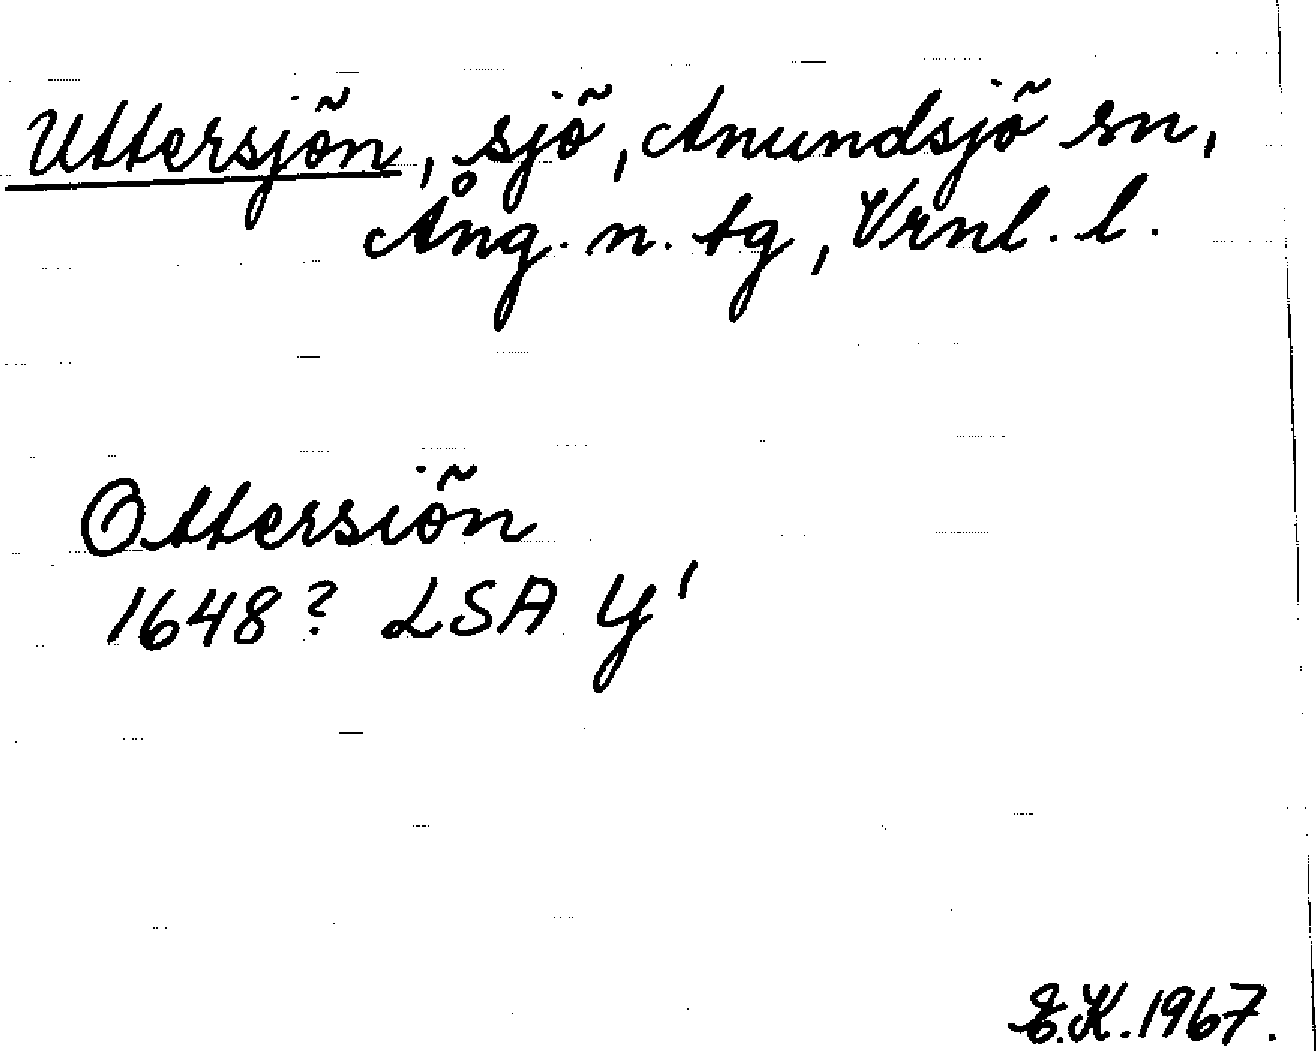 Uttersjön, sjö, Anundsjö sn,
Ång. n. tg, Vrnl. l.
Ottersiön
1648? LSA Y'
E.K. 1967.